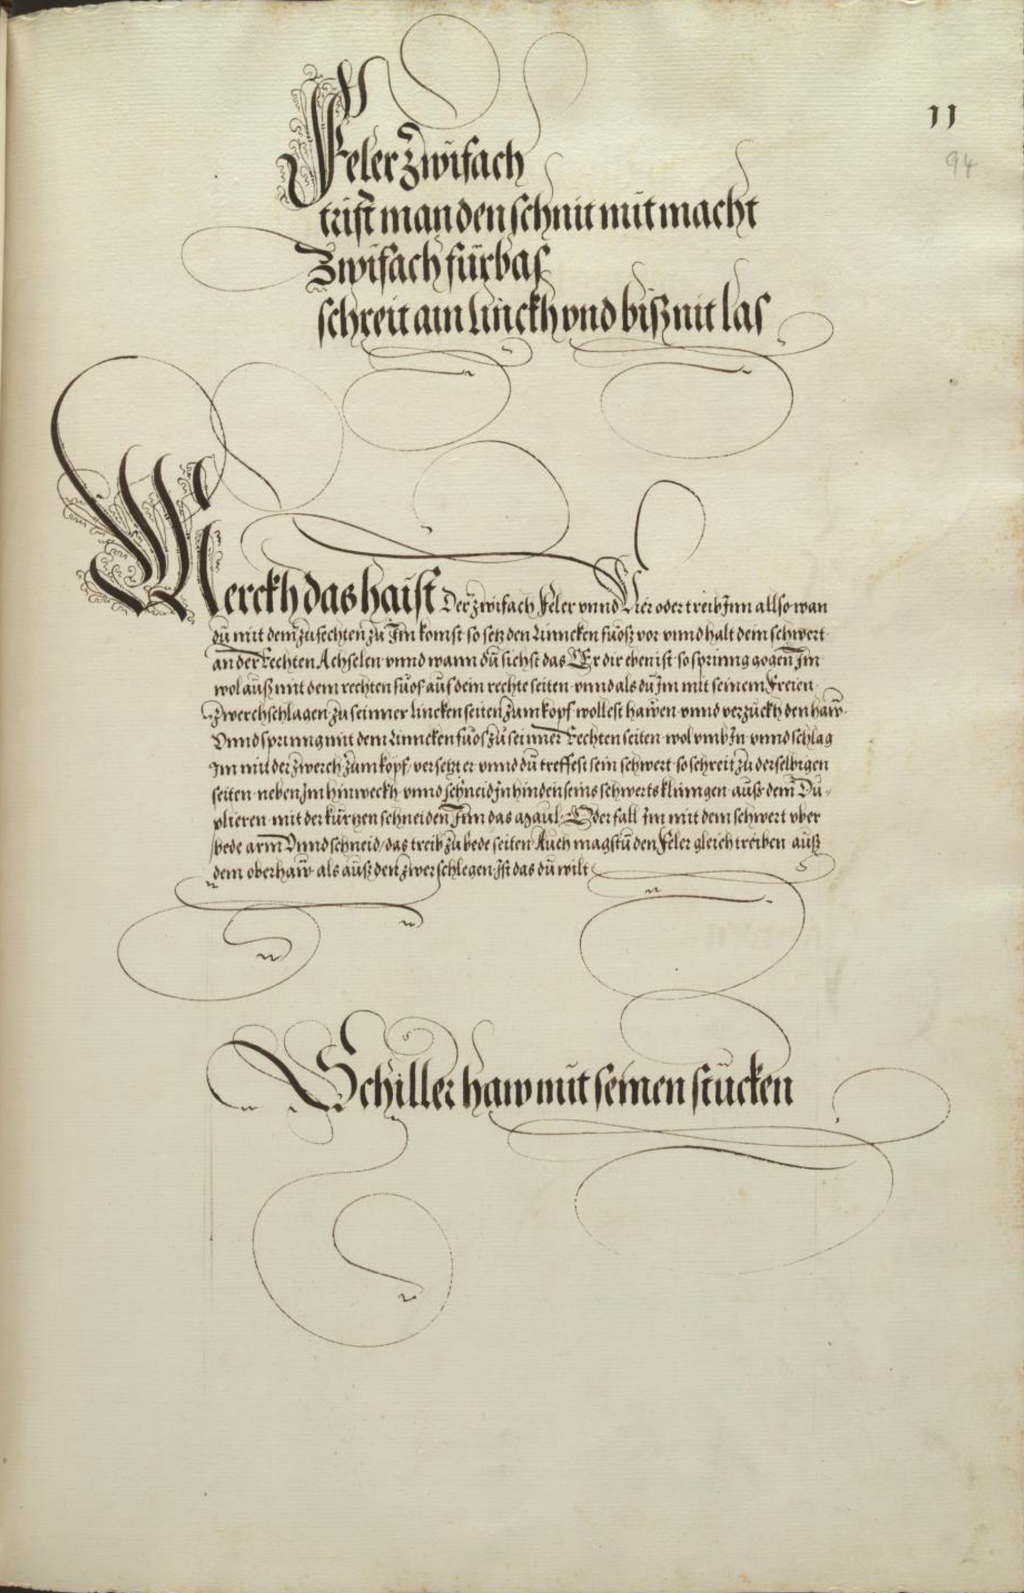 11
94
Feler zwifach
trift man den schnit mit macht
Zwifach fürbas
schreit am linckh vnd biß nit las
Merckh das haist Der zwifach Feler vnnd Nier oder treib Inn allso wan
dü mit dem zufechten zu Im komst so setz den Linncken fuoß vor vnnd halt dein schwert
an der Rechten Achselen vnnd wann dü sichst das Er dir eben ist so sprinng gogen Im
wol auß mit dem rechten fuos auf dein rechte seiten vnnd als dü Im mit seinem Freien
Zwerchschlagen zu seinner Lincken seiten zum kopf wollest hawen vnnd verzuckh den haw
Vnnd sprinng mit dem Linncken fuos zu seinner Rechten seiten wol vmb In vnnd schlag
Im mit der zwerch zum kopf versetzt er vnnd dü treffest sein schwert so schreit zu derselbigen
seiten neben Im hinweckh vnnd schneid In hinden seins schwerts klinngen auß dem Du-
plieren mit der kurtzen schneiden Inn das maul Oder fall Im mit dem schwert vber
bede arm Vnnd schneid / das treib zu bede seiten Auch magstu den Feler gleich treiben auß
dem oberhaw als auß den zwerschlegen Ist das dü wilt
Schiller haw mit seinen stucken